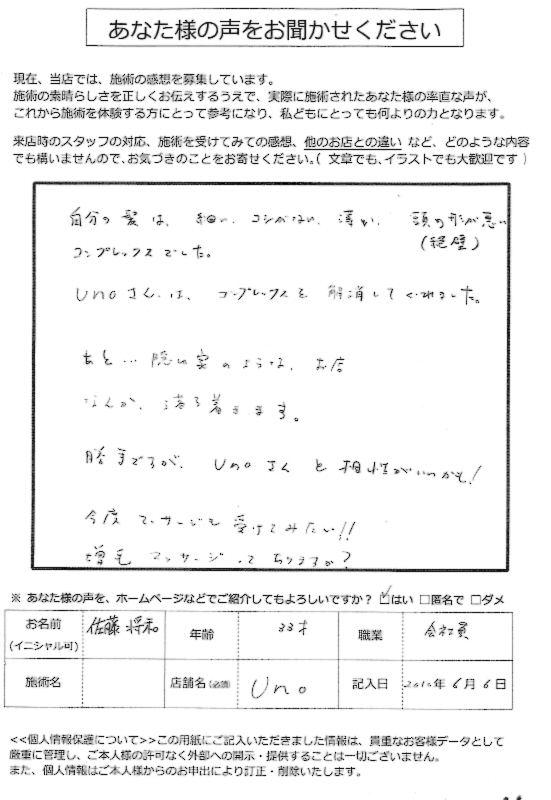 あなた様の声をお聞かせください
現在、当店では、施術の感想を募集しています。
施術の素晴らしさを正しくお伝えするうえで、実際に施術されたあなた様の率直な声が、
これから施術を体験する方にとって参考になり、私どもにとっても何よりの力となります。
来店時のスタッフの対応、施術を受けてみての感想、他のお店との違い など、どのような内容
でも構いませんので、お気づきのことをお寄せください。( 文章でも、イラストでも大歓迎です )
自分の髪は、細い、コシがない、薄い、頭の形が悪い
(絶壁)
コンプレックスでした。
Unoさんは、コンプレックスを解消してくれました。
あと… 隠れ家のような、お店
なんか、落ち着きます。
勝手ですが、Unoさんと相性がいいかも!
今度マッサージも受けてみたい!!
増毛マッサージってありますか?
※ あなた様の声を、ホームページなどでご紹介してもよろしいですか? ☑はい □匿名で □ダメ
お名前 佐藤 将和 年齢 33才 職業 会社員
(イニシャル可)
施術名 店舗名(必須) Uno 記入日 2010年6月6日
<<個人情報保護について>>この用紙にご記入いただきました情報は、貴重なお客様データとして
厳重に管理し、ご本人様の許可なく外部への開示・提供することは一切ございません。
また、個人情報はご本人様からのお申出により訂正・削除いたします。